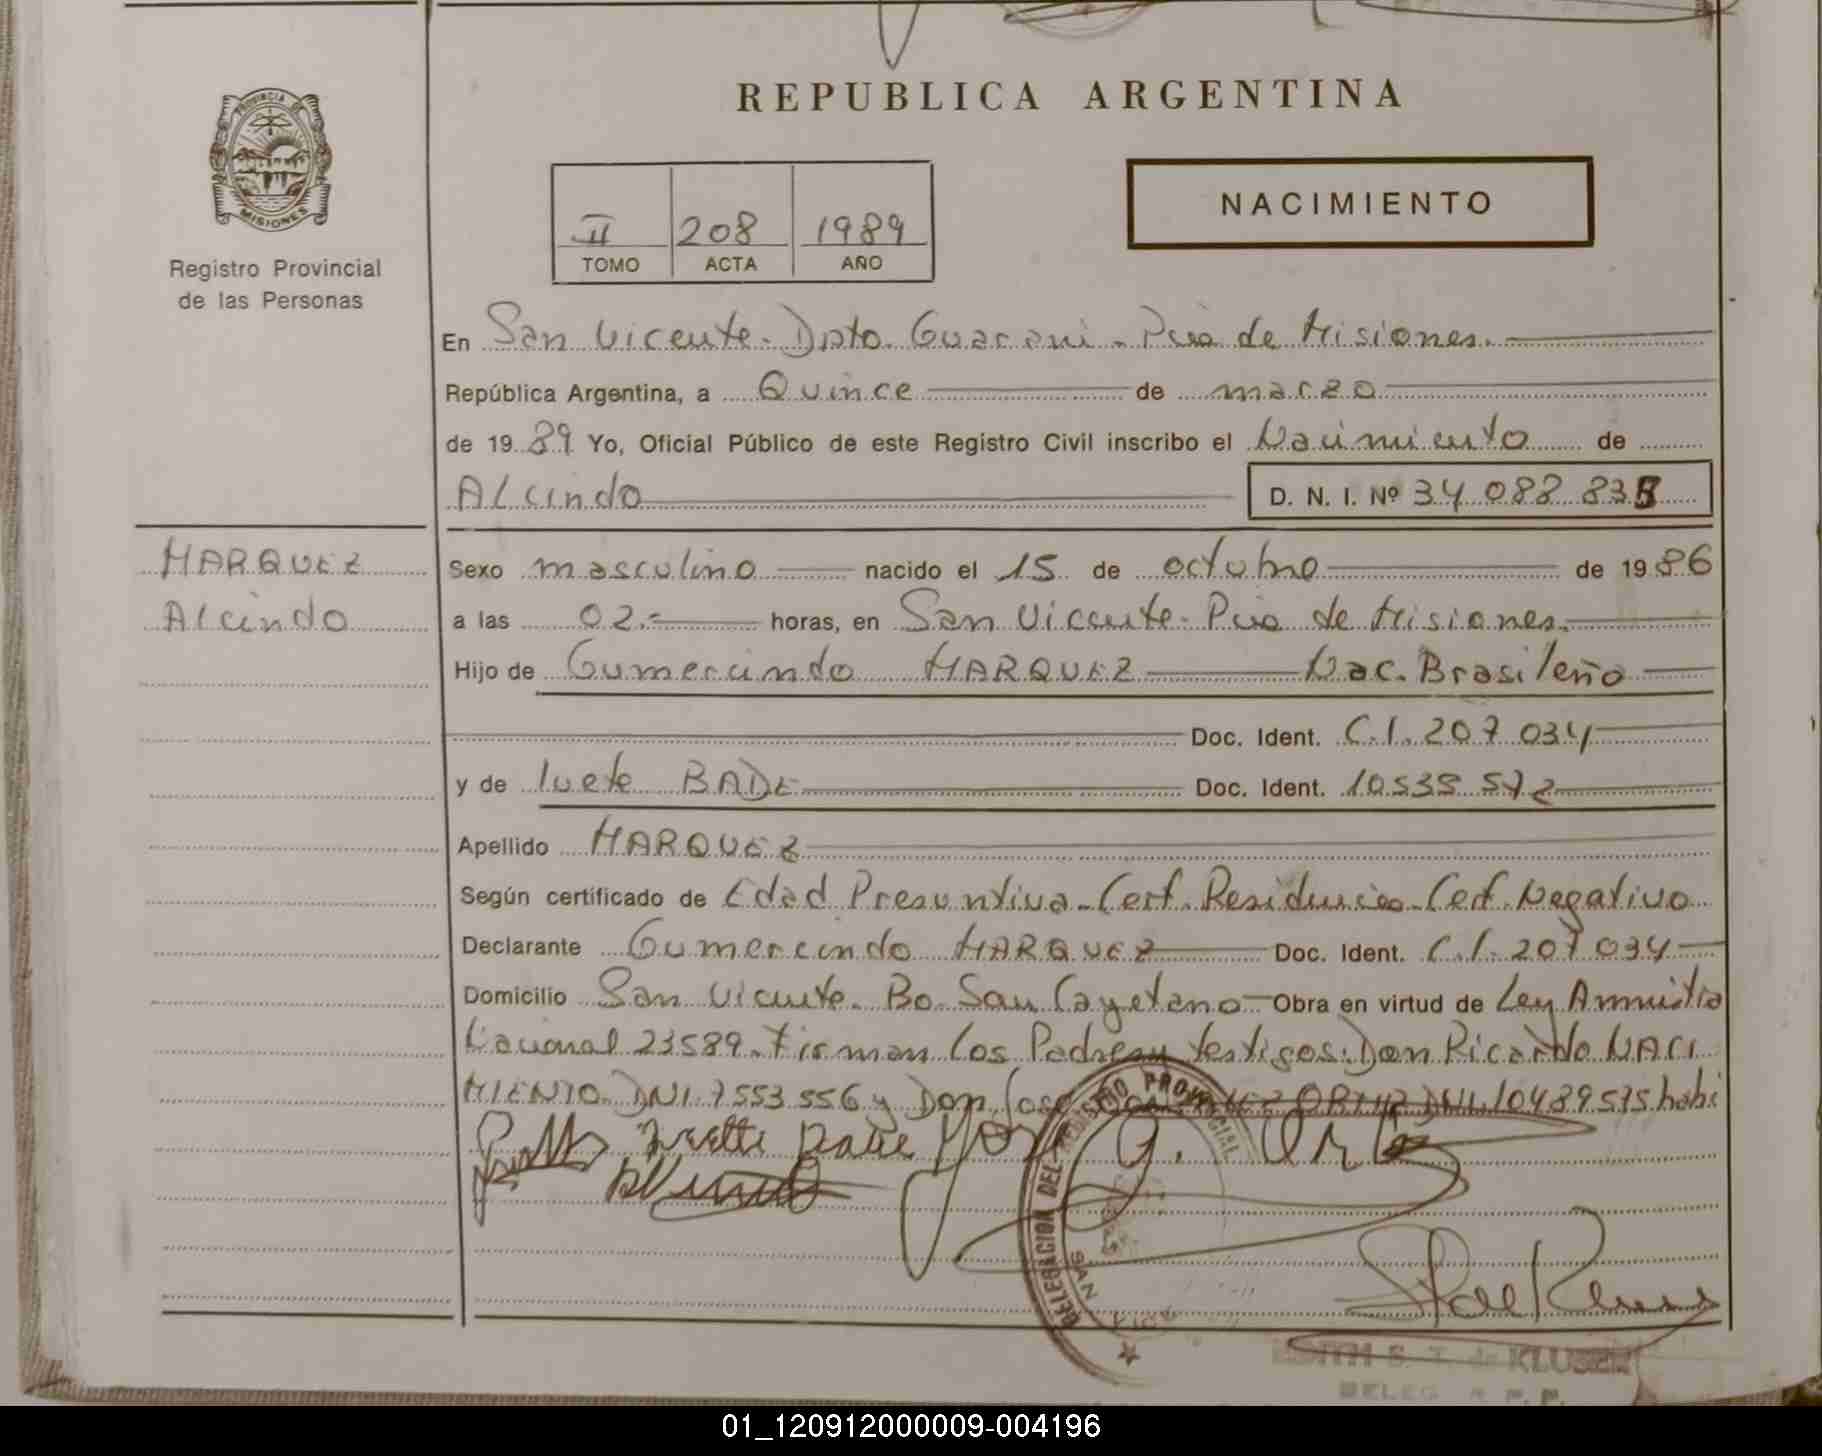 REPUBLICA ARGENTINA
PROVINCIA DE MISIONES
Registro Provincial
de las Personas
II 208 1989
TOMO ACTA AÑO
NACIMIENTO
En San Vicente. Dpto. Guaraní. Pcia de Misiones.
República Argentina, a Quince de marzo
de 1989 Yo, Oficial Público de este Registro Civil inscribo el Nacimiento de
Alcindo D. N. I. Nº 34 088 835
MARQUEZ
Alcindo
Sexo masculino nacido el 15 de octubre de 1986
a las 02.- horas, en San Vicente. Pcia de Misiones.
Hijo de Gumercindo MARQUEZ Nac. Brasileño
Doc. Ident. C.I. 207 034
y de Ivete BADE Doc. Ident. 10535 572
Apellido MARQUEZ
Según certificado de Edad Presuntiva. Cert. Residencia. Cert. Negativo
Declarante Gumercindo MARQUEZ Doc. Ident. C.I. 207 034
Domicilio San Vicente. Bo. San Cayetano Obra en virtud de Ley Amnistia
Nacional 23589. Firman los Padres y testigos: Don Ricardo NACI
MIENTO. DNI. 7553 556 y Don José DNI. 10489575 habi
DELEGACION DEL REGISTRO PROVINCIAL
SAN
EDITH S. T. de KLUSEN
DELEG R. P. P.
01_120912000009-004196